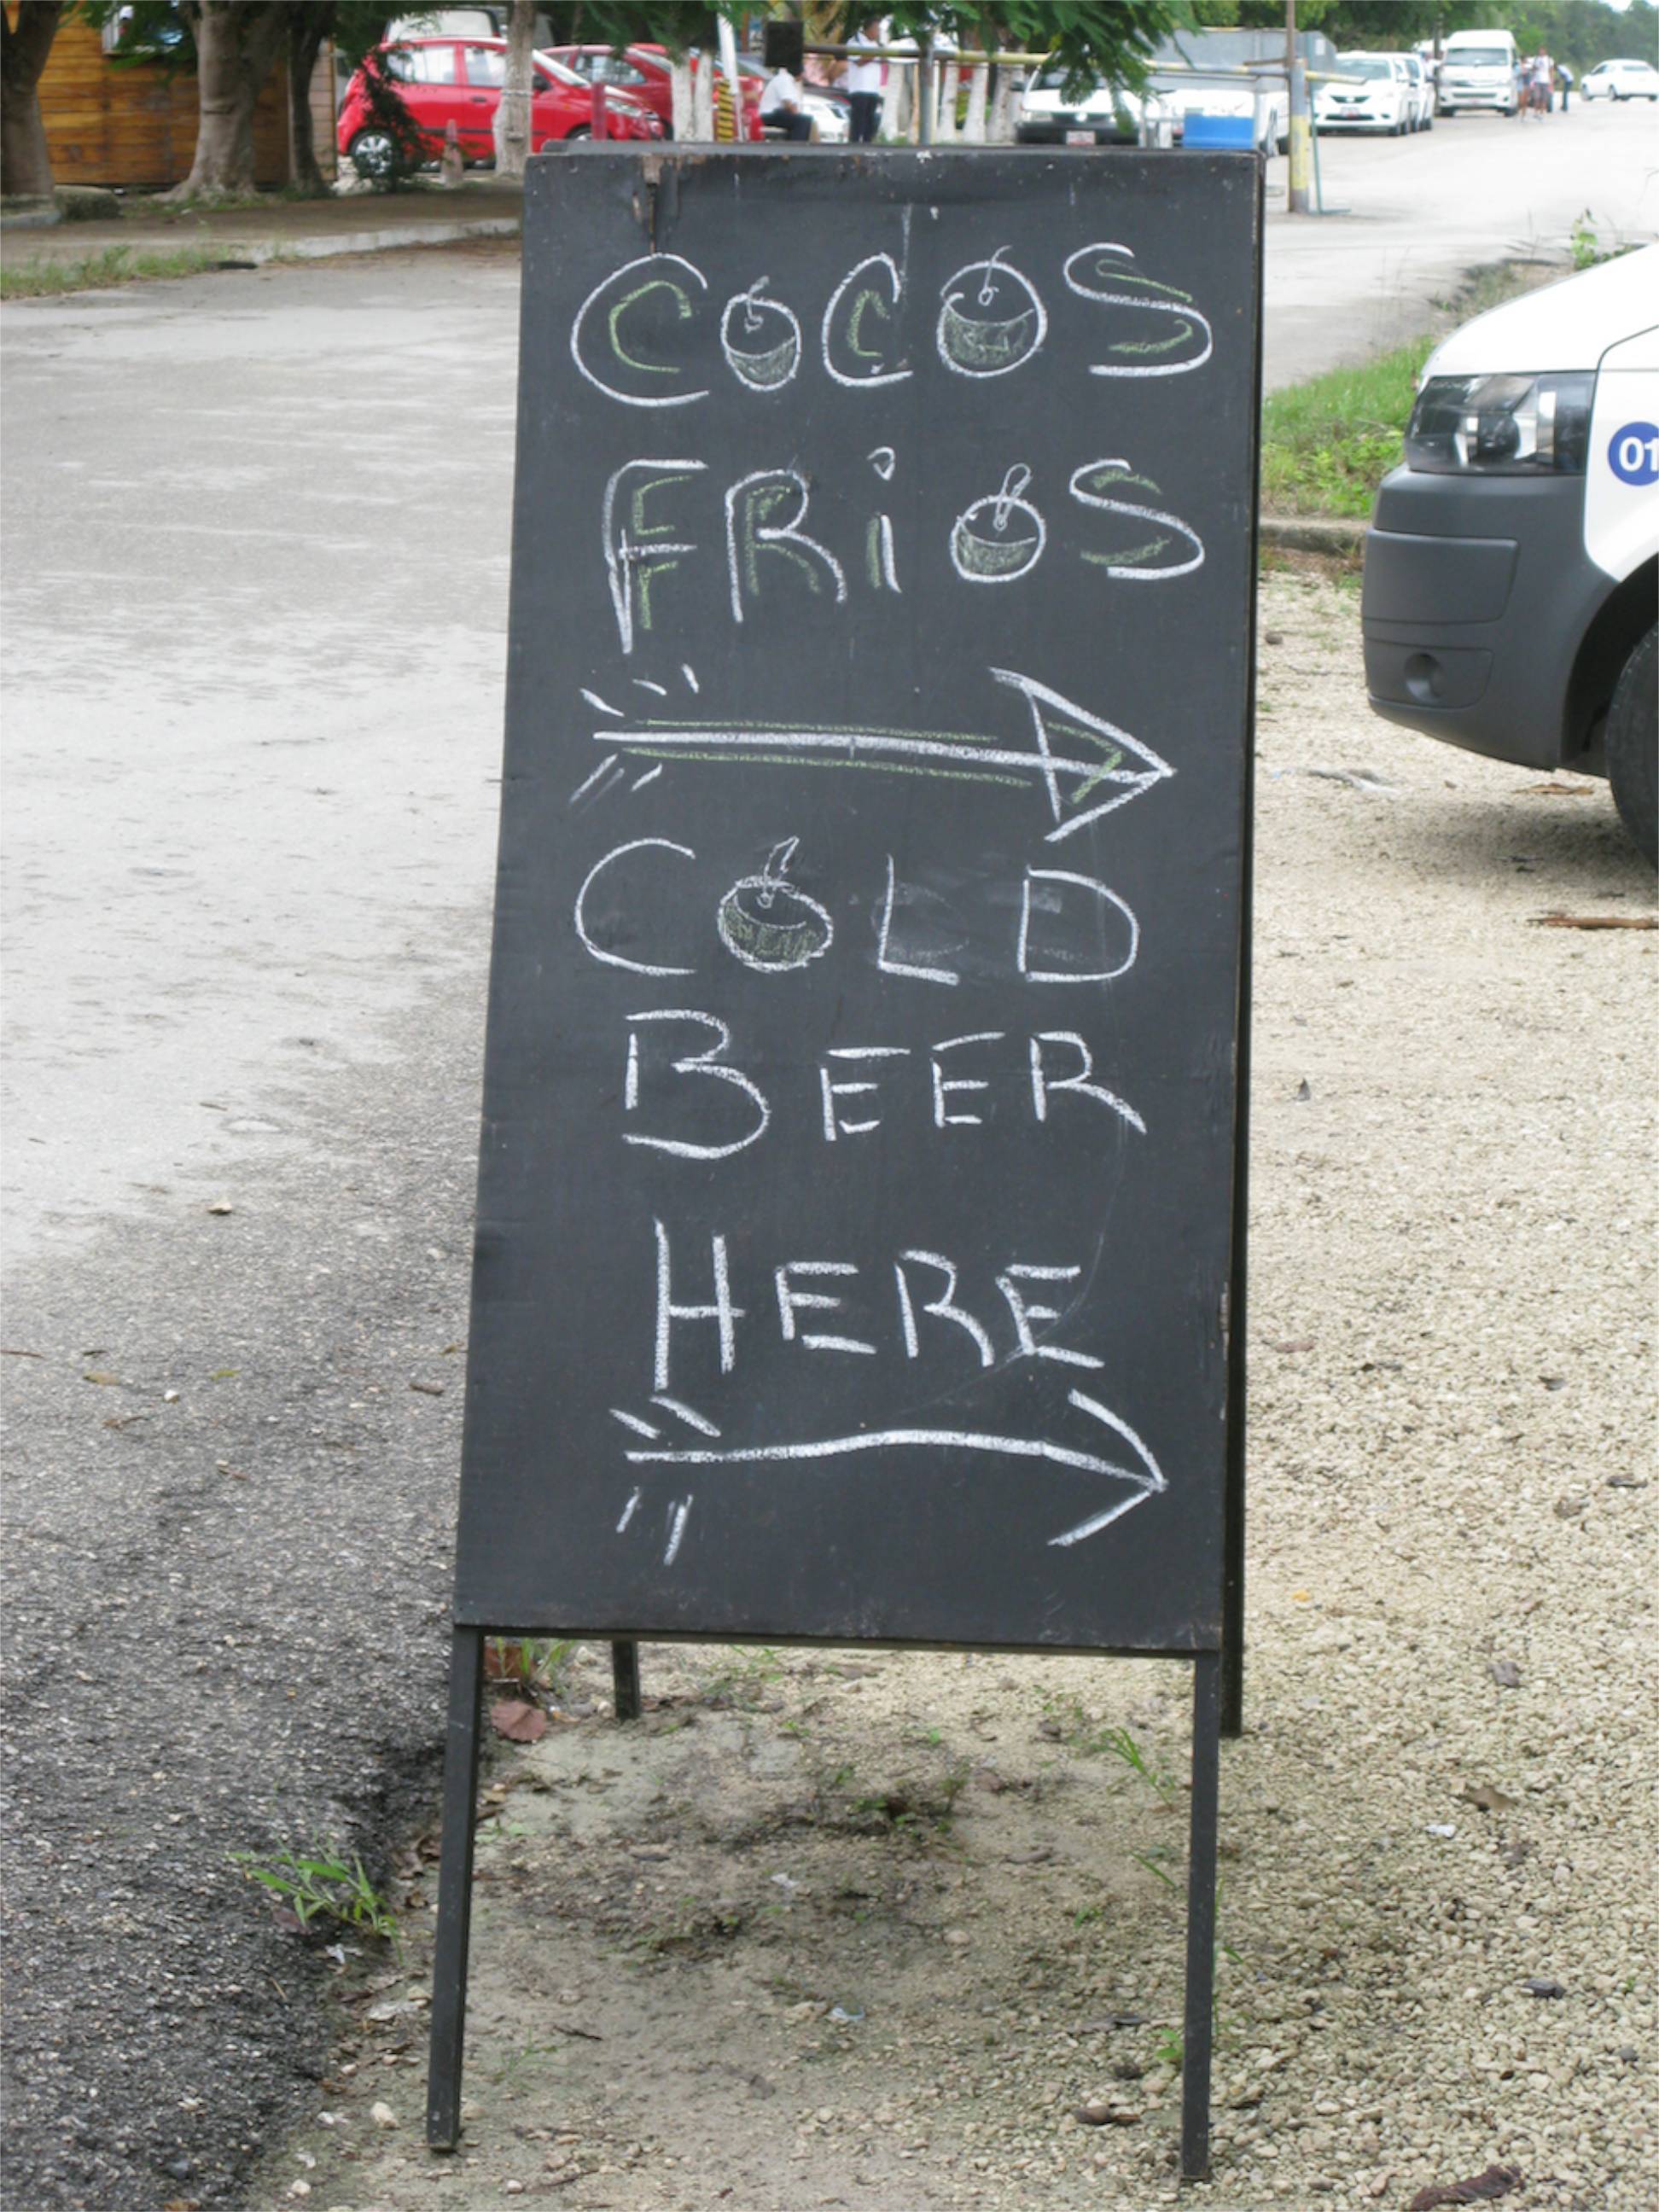 COCOS
FRiOS
COLD
BEER
HERE
01